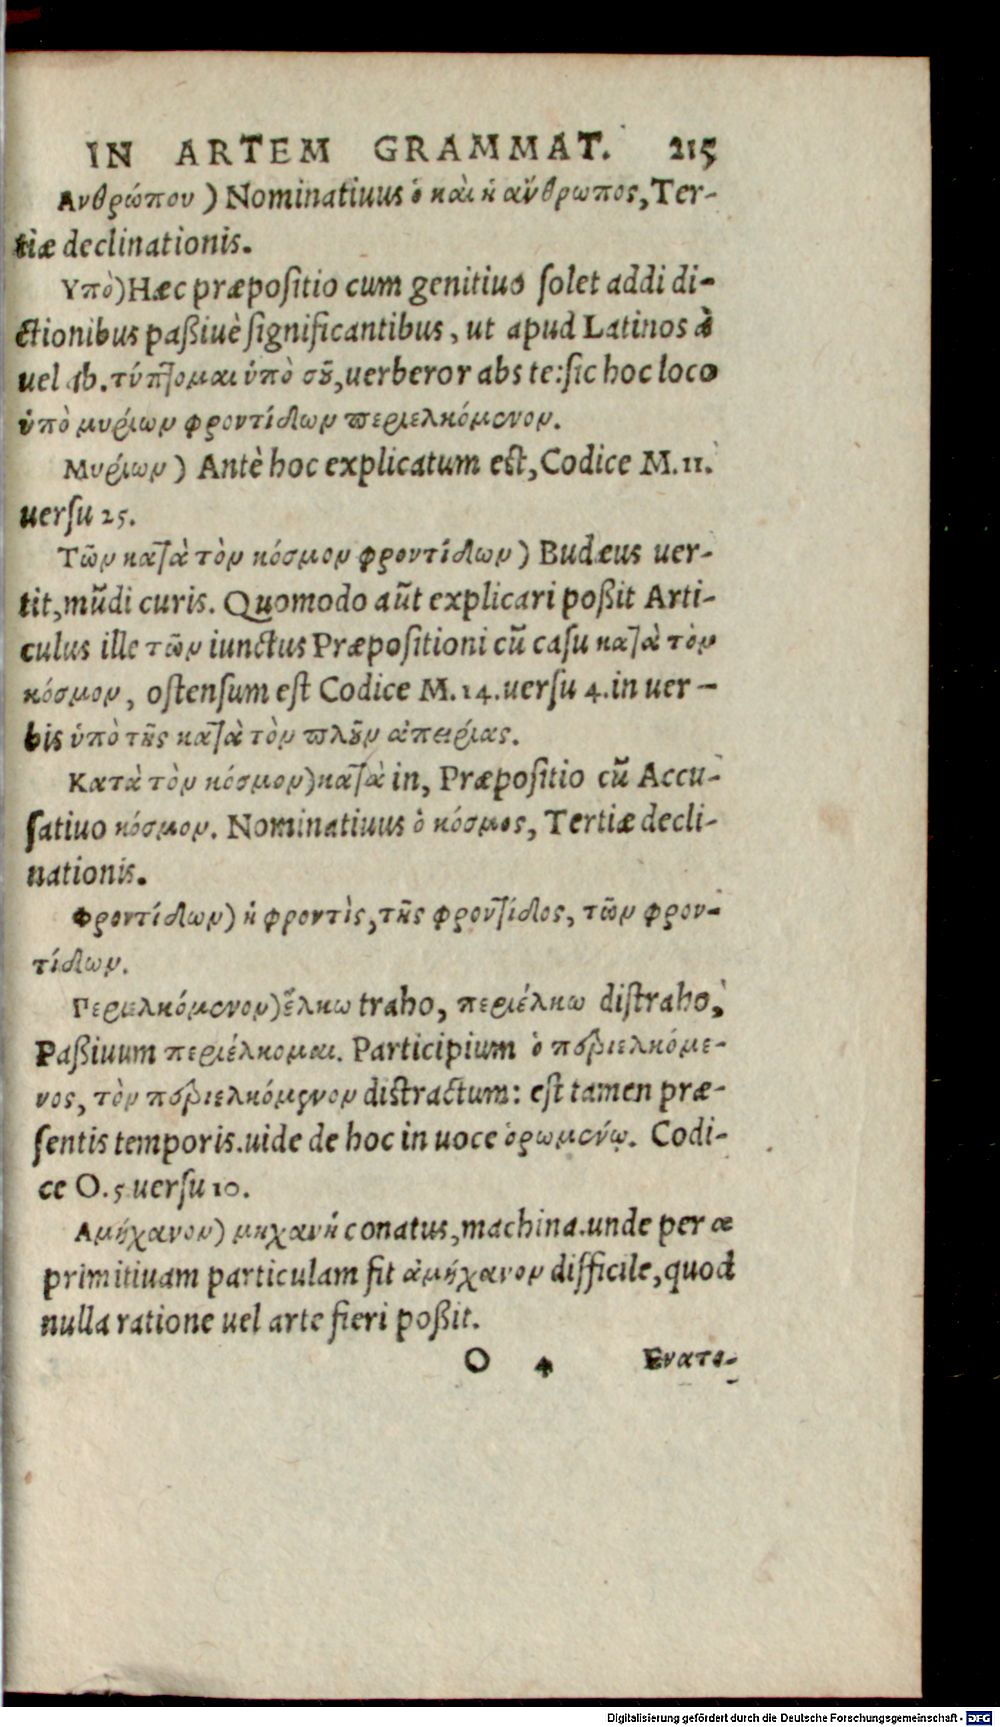 IN ARTEM GRAMMAT. 215
Ανθρώπου ) Nominatiuus ὁ καὶ ἡ ἄνθρωπος, Ter-
tiæ declinationis.
Υπὸ) Hæc præpoſitio cum genitiuo ſolet addi di-
ctionibus paßiuè ſignificantibus, ut apud Latinos à
uel ab. τύπτομαι ὑπὸ σȣ͂, uerberor abs te: ſic hoc loco
ὑπὸ μυρίων φροντίδων περιελκόμενον.
Μυρίων ) Antè hoc explicatum est, Codice M. 11.
uerſu 25.
Τῶν κατὰ τὸν κόσμον φροντίδων ) Budæus uer-
tit, mūdi curis. Quomodo aūt explicari poßit Arti-
culus ille τῶν iunctus Præpoſitioni cū caſu κατὰ τὸν
κόσμον, oſtenſum eſt Codice M. 14. uerſu 4. in uer-
bis ὑπὸ τῆς κατὰ τὸν πλȣ͂ν ἀπειρίας.
Κατὰ τὸν κόσμον) κατὰ in, Præpoſitio cū Accu-
ſatiuo κόσμον. Nominatiuus ὁ κόσμος, Tertiæ decli-
nationis.
Φροντίδων) ἡ φροντὶς, τῆς φροντίδος, τῶν φρον-
τίδων.
Περιελκόμενον) ἕλκω traho, περιέλκω diſtraho,
Paßiuum περιέλκομαι. Participium ὁ περιελκόμε-
νος, τὸν περιελκόμενον distractum: eſt tamen præ-
ſentis temporis. uide de hoc in uoce ὁρωμένῳ. Codi-
ce O. 5 uerſu 10.
Αμήχανον) μηχανὴ conatus, machina. unde per α
primitiuam particulam fit ἀμήχανον difficile, quod
nulla ratione uel arte fieri poßit.
O 4 Ενατε-
Digitalisierung gefördert durch die Deutsche Forschungsgemeinschaft - DFG